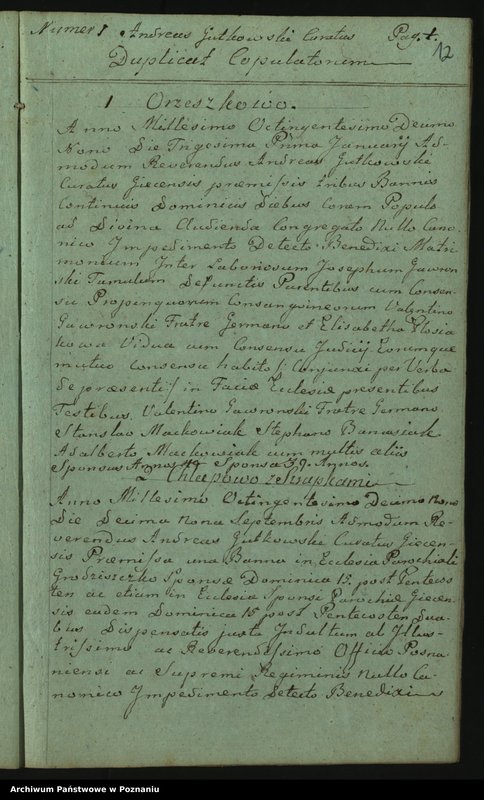 Numer 1 Andreas Gutkowski Curatus Pag. 1.
12
Duplicat Copulatorum
1 Orzeszkowo.
Anno Millesimo Octingentesimo Decimo
Nono Die Trigesima Prima Januarij Ad-
modum Reverendus Andreas Gutkowski
Curatus Giecensis præmissis tribus Bannis
Continuis Dominicis Diebus Coram Populo
ad Divina Audienda Congregato Nullo Cano-
nico Impedimento Detecto Benedixi Matri-
monium Inter Laboriosum Josephum Gawron-
ski Famulum Defunctis Parentibus cum Consen-
su Propinquorum Consanguineorum Valentino
Gawronski Fratre Germano et Elisabetha
kowa Vidua cum Consensu Judicij Eorumque
mutuo Consensu habito /: Conjunxi per Verba
de præsenti :/ in Facie Ecclesiæ presentibus
Testibus Valentino Gawronski Fratre Germano
Stanislao Mackowiak Stephano Banasiak
Adalberto Mackowiak cum multis aliis
Sponsus Annos Sponsa 39 Annos.
2 Chłapowo
Anno Millesimo Octingentesimo Decimo Nono
Die Decima Nona Septembris Admodum Re-
verendus Andreas Gutkowski Curatus Giecen-
sis Præmissa una Banna in Ecclesia Parochiali
Grodziszczko Sponsæ Dominica 15 post Pentecos
ten ac etiam in Ecclesia Sponsi Parochiæ Giecen-
sis eadem Dominica 15 post Pentecosten Dua-
bus Dispensatis juxta Indultum ab Illus-
trissimo ac Reverendissimo Officio Posna-
niensi ac Supremi Regiminis Nullo Ca-
nonico Impedimento Detecto Benedixi
Archiwum Państwowe w Poznaniu